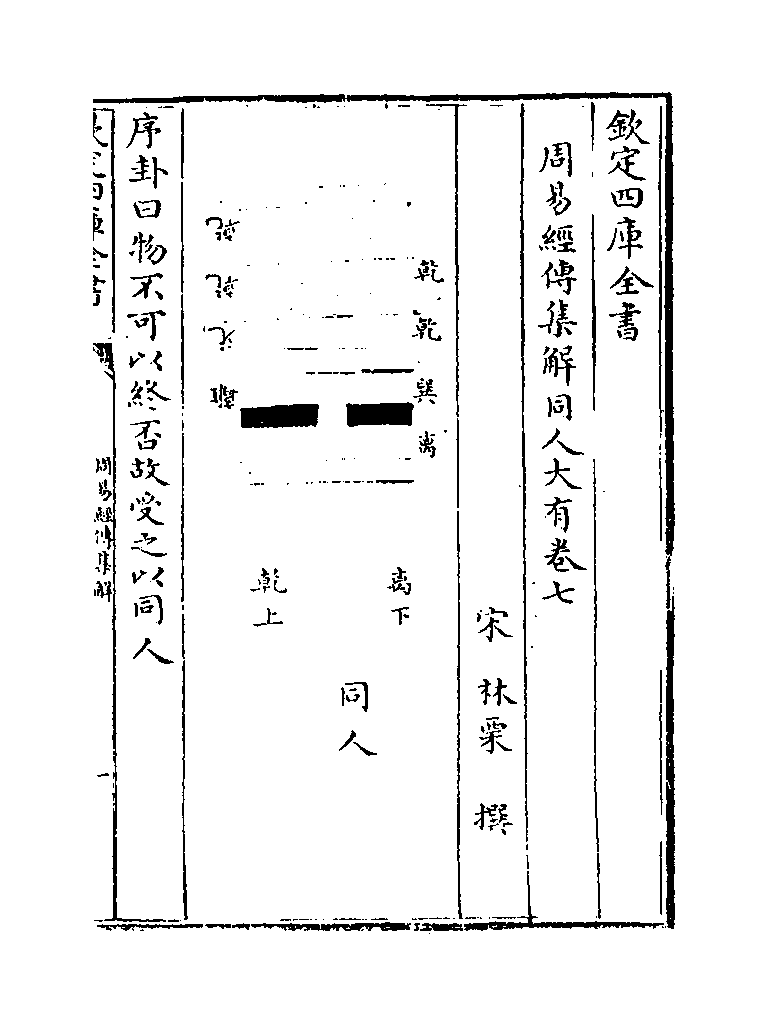 欽定四庫全書
周易經傳集解同人大有卷七
宋 林栗 撰
乾 乾 巽 离
离下
乾上
同人
乾 乾 兑 離
序卦曰物不可以終否故受之以同人
欽定四庫全書
周易經傳集解
一